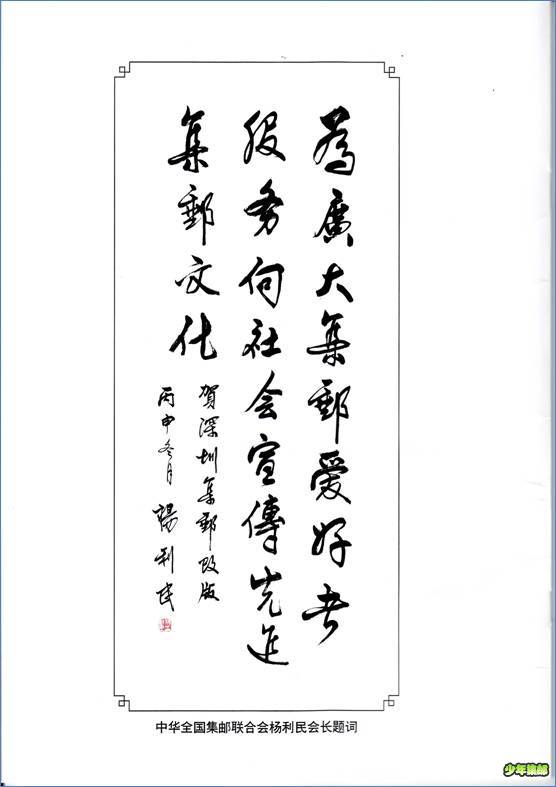 為廣大集郵爱好者
服务向社会宣傳先进
集郵文化
賀深圳集郵改版
丙申冬月 楊利民
中华全国集邮联合会杨利民会长题词
少年集邮